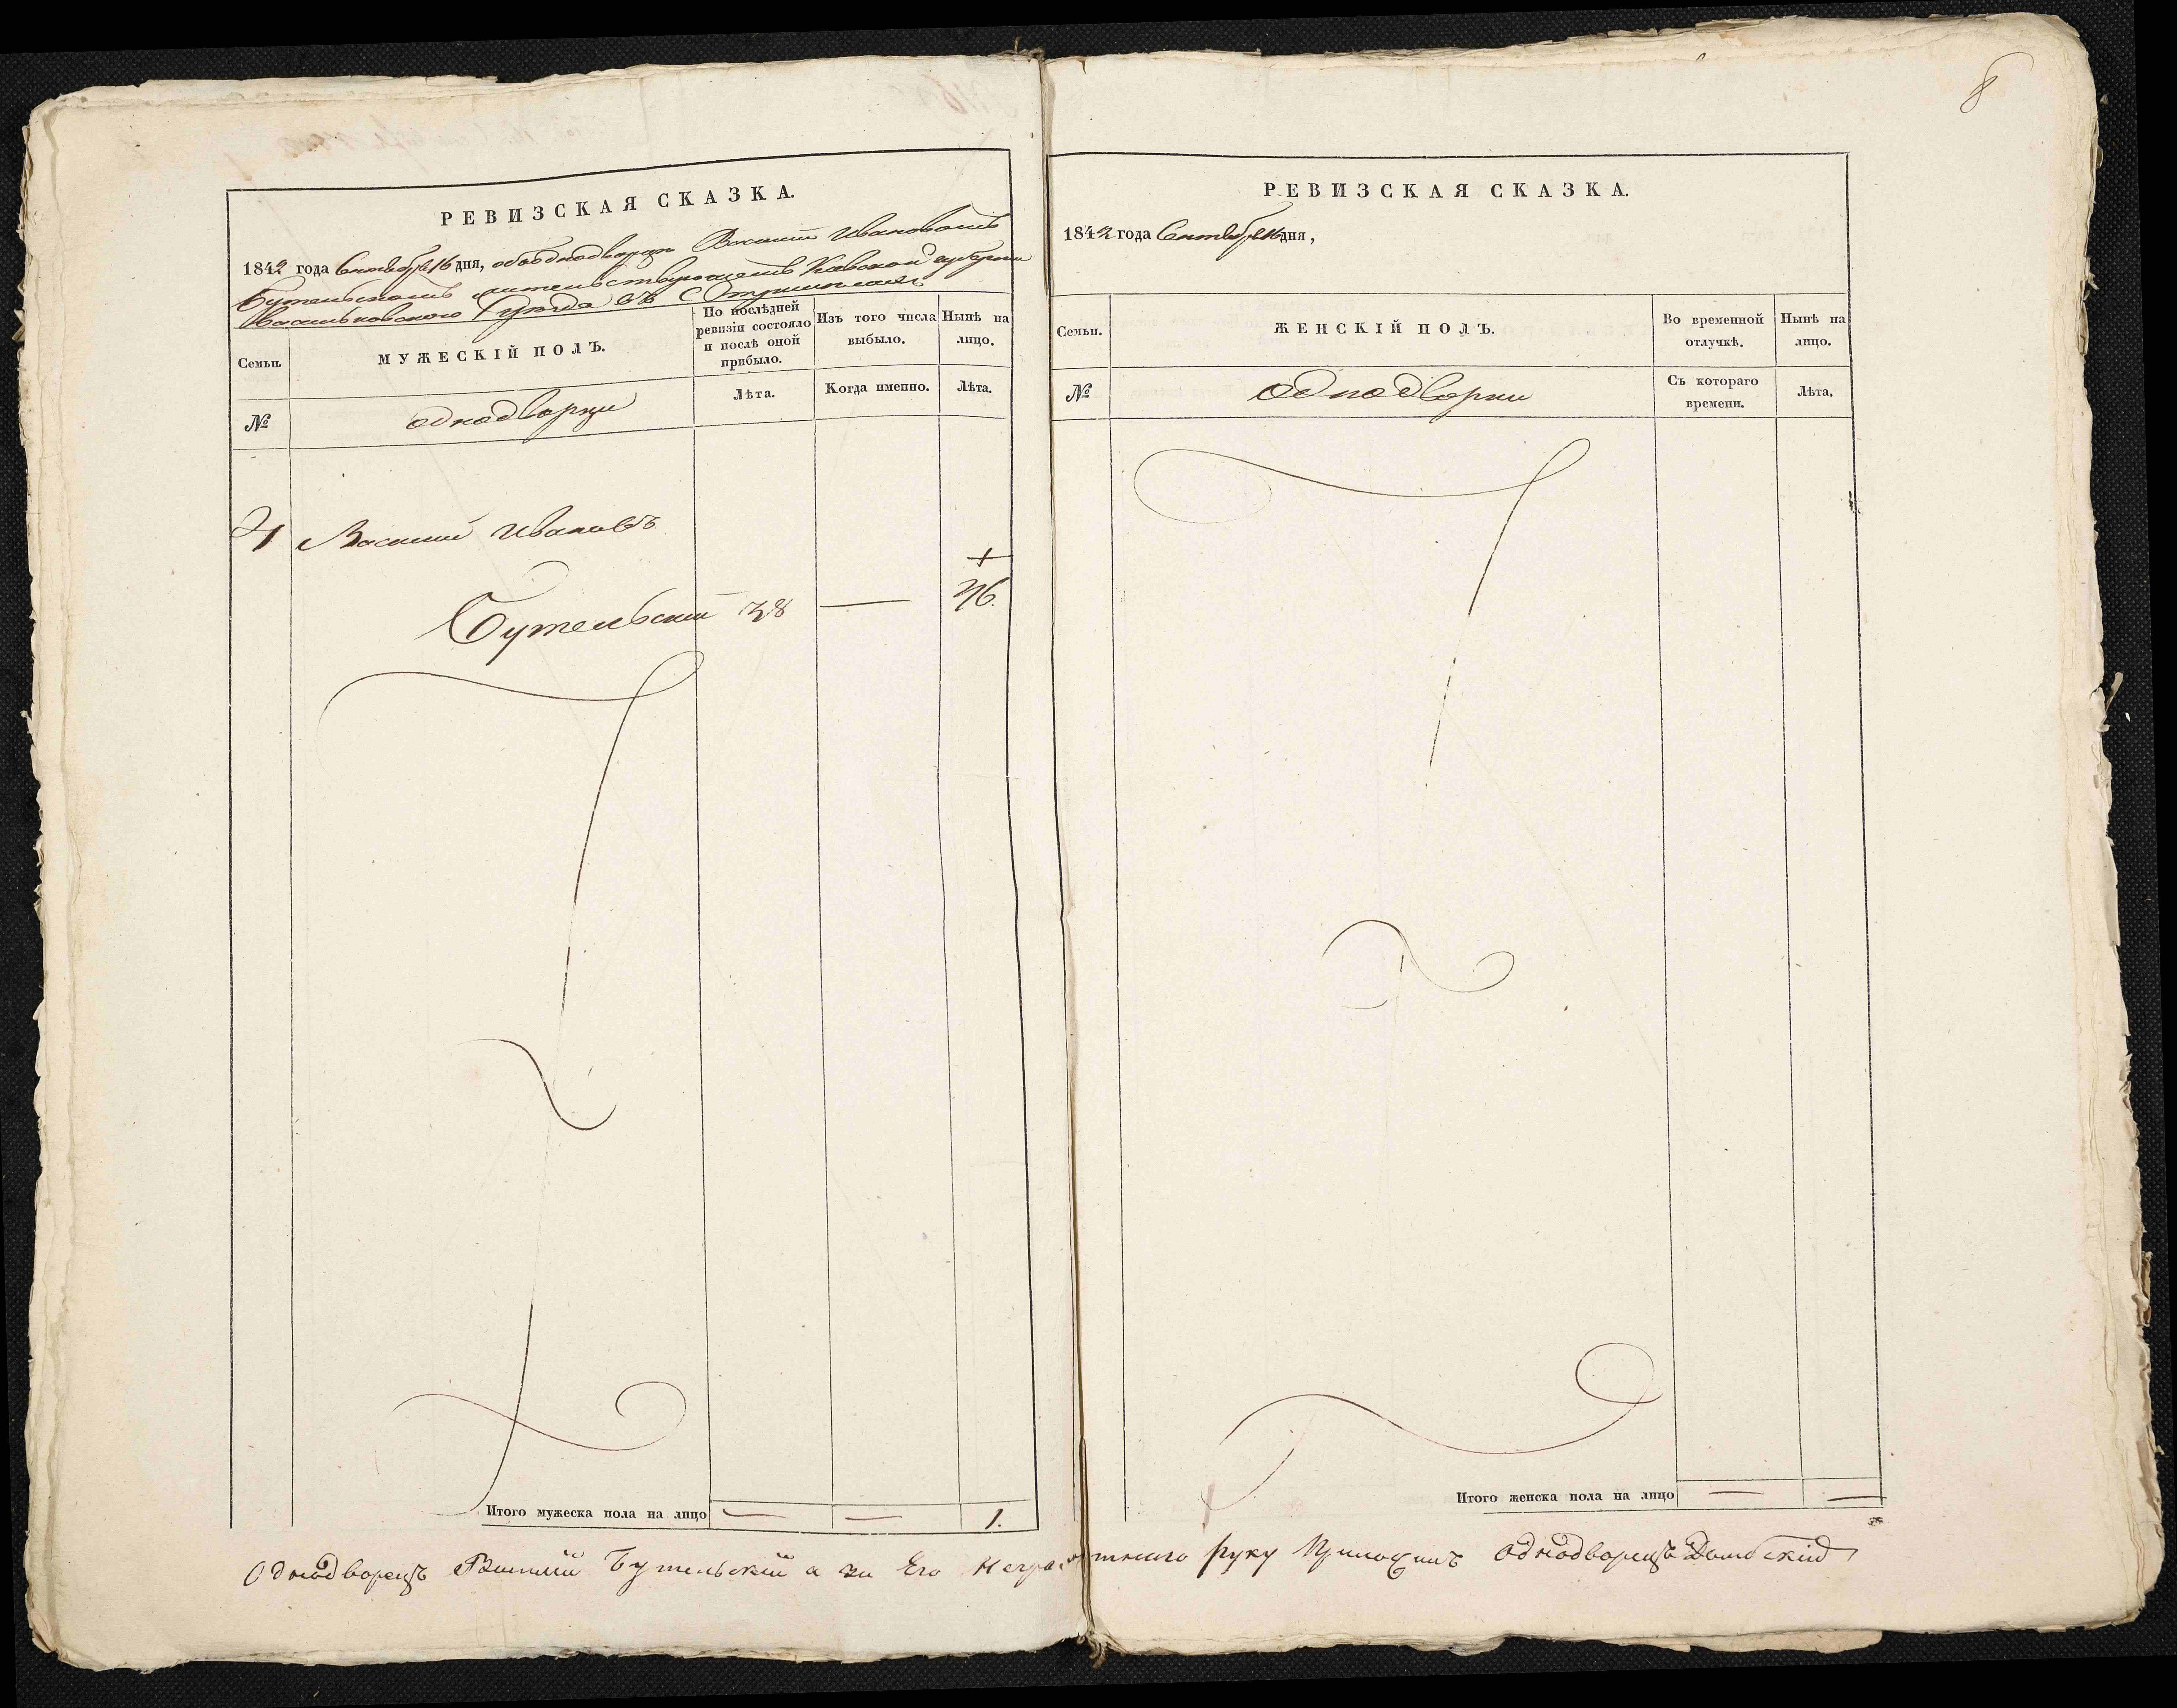 8
РЕВИЗСКАЯ СКАЗКА.
1842 года Сентября 16 дня, ободнодворцѣ Василіи Ивановомъ
Бутельскомъ жительствующемъ Кіевской губерніи
Васильковскаго уѣзда въ С
Семьи.
МУЖЕСКІЙ ПОЛЪ.
По послѣдней ревизіи состояло и послѣ оной прибыло.
Изъ того числа выбыло.
Нынѣ на лицо.
№
однодворцы
Лѣта.
Когда именно.
Лѣта.
Василій Ивановъ
Бутельскій 38 — 46.
Итого мужеска пола на лицо — — 1.
РЕВИЗСКАЯ СКАЗКА.
1842 года Сентября 16 дня,
Семьи.
ЖЕНСКІЙ ПОЛЪ.
Во временной отлучкѣ.
Нынѣ на лицо.
№
однодворки
Съ котораго времени.
Лѣта.
Итого женска пола на лицо — —
Однодворецъ Василій Бутельскій а за Его Неграмотнаго руку Приложилъ Однодворецъ